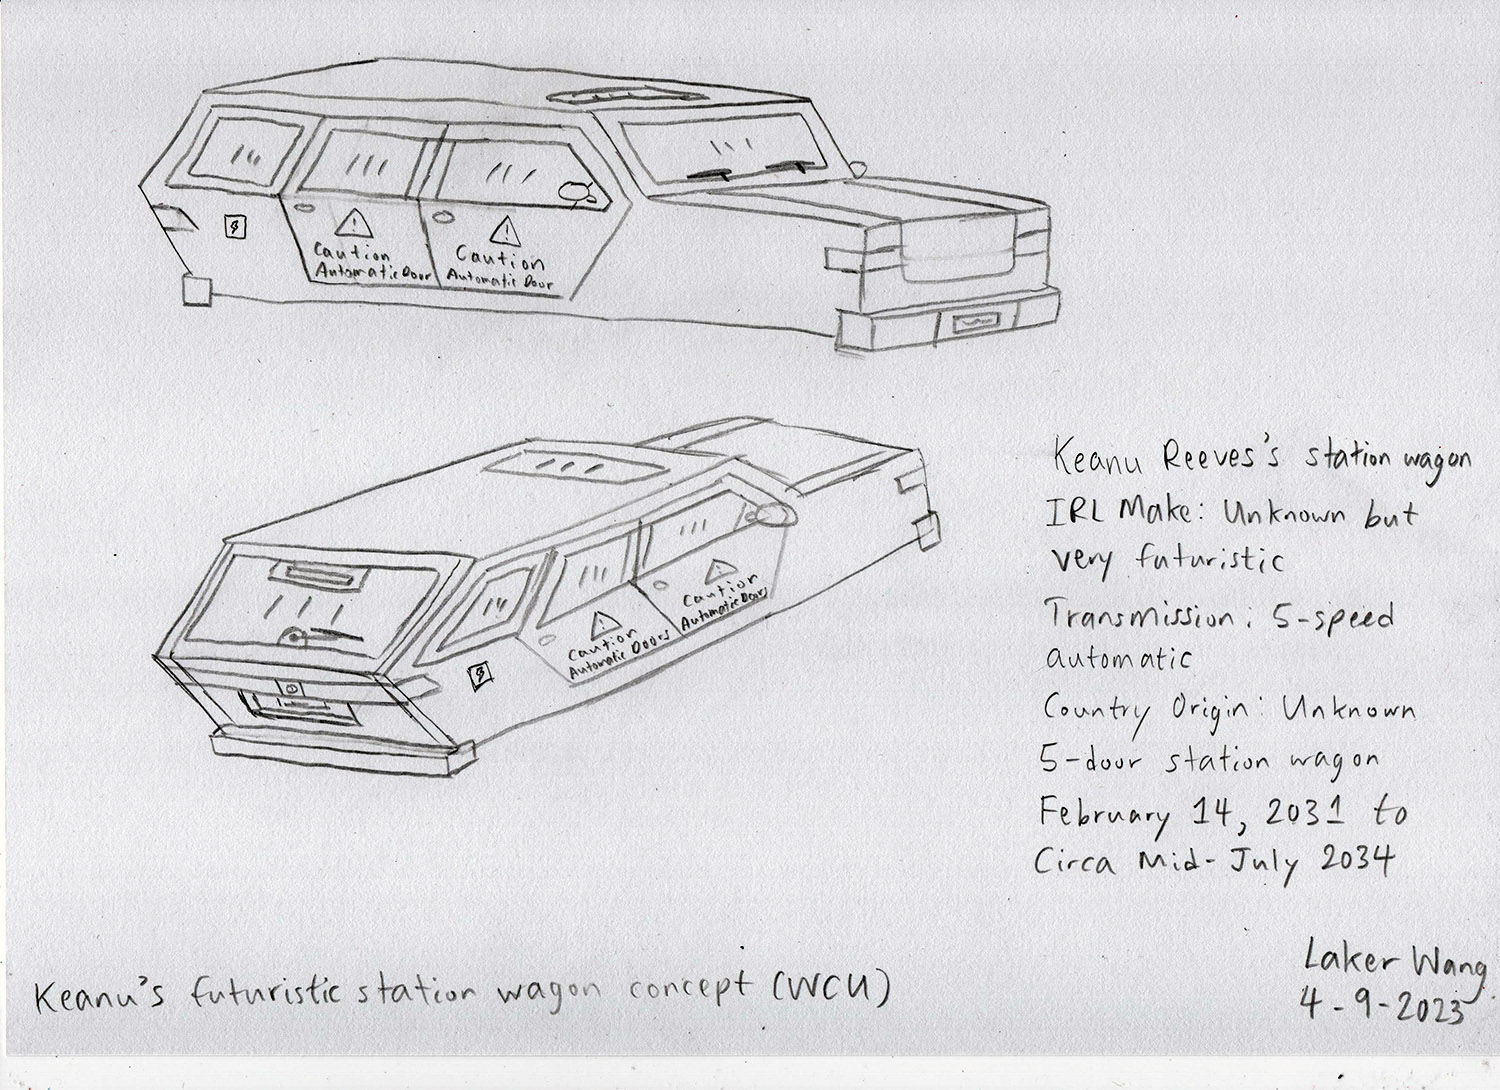 Caution
Automatic Door
Caution
Automatic Door
Caution
Automatic Doors
Caution
Automatic Doors
Keanu Reeves's station wagon
IRL Make: Unknown but
very futuristic
Transmission: 5-speed
automatic
Country Origin: Unknown
5-door station wagon
February 14, 2031 to
Circa Mid-July 2034
Keanu's futuristic station wagon concept (WCU)
Laker Wang
4-9-2023